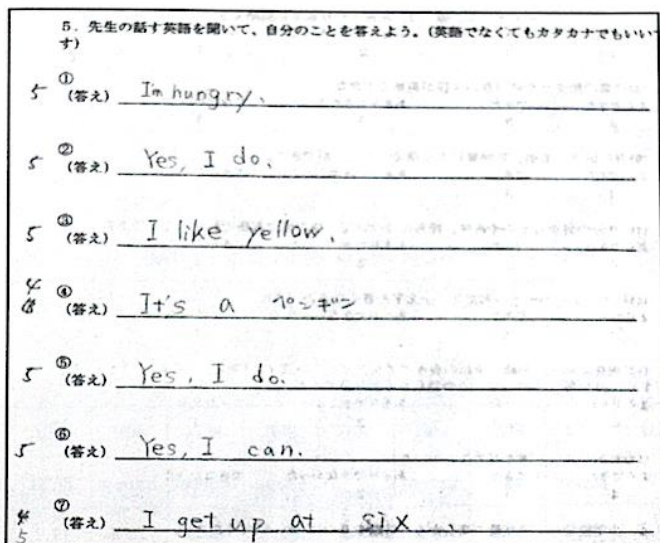 5. 先生の話す英語を聞いて、自分のことを答えよう。(英語でなくてもカタカナでもいいです)
5 ① (答え) I'm hungry.
5 ② (答え) Yes, I do.
5 ③ (答え) I like yellow.
4 ④ (答え) It's a ペンギン
5 ⑤ (答え) Yes, I do.
5 ⑥ (答え) Yes, I can.
5 ⑦ (答え) I get up at six.